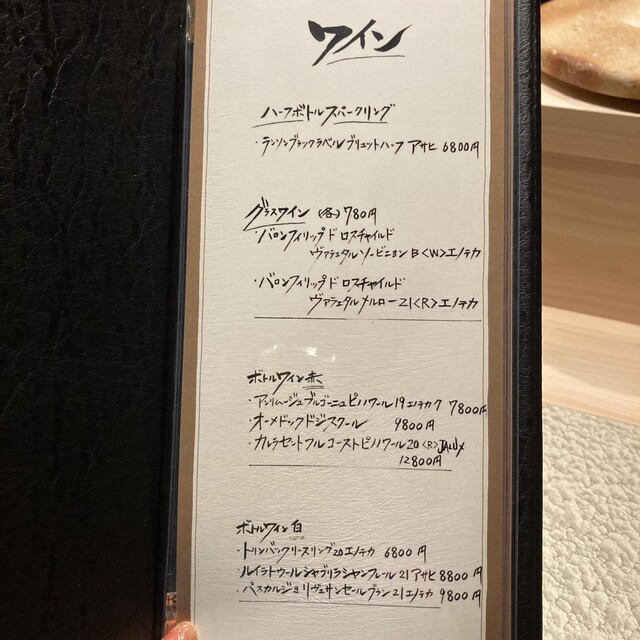 ワイン
ハーフボトルスパークリング
・ランソンブラックラベルブリュットハーフ アサヒ 6800円
グラスワイン (各) 780円
・バロンフィリップド ロスチャイルド
ヴァラエタルソービニヨン B<W>エノテカ
・バロンフィリップド ロスチャイルド
ヴァラエタルメルロー21<R>エノテカ
ボトルワイン 赤
・アンリムージュブルゴーニュピノノワール19エノテカ 7800円
・オーメドックドジスクール 9800円
・カレラセントラルコーストピノノワール20<R>JALUX
12800円
ボトルワイン 白
・トリンバックリースリング20エノテカ 6800円
・ルイラトゥールシャブリラシャンフルール21アサヒ8800円
・パスカルジョリヴェサンセールブラン21エノテカ 9800円